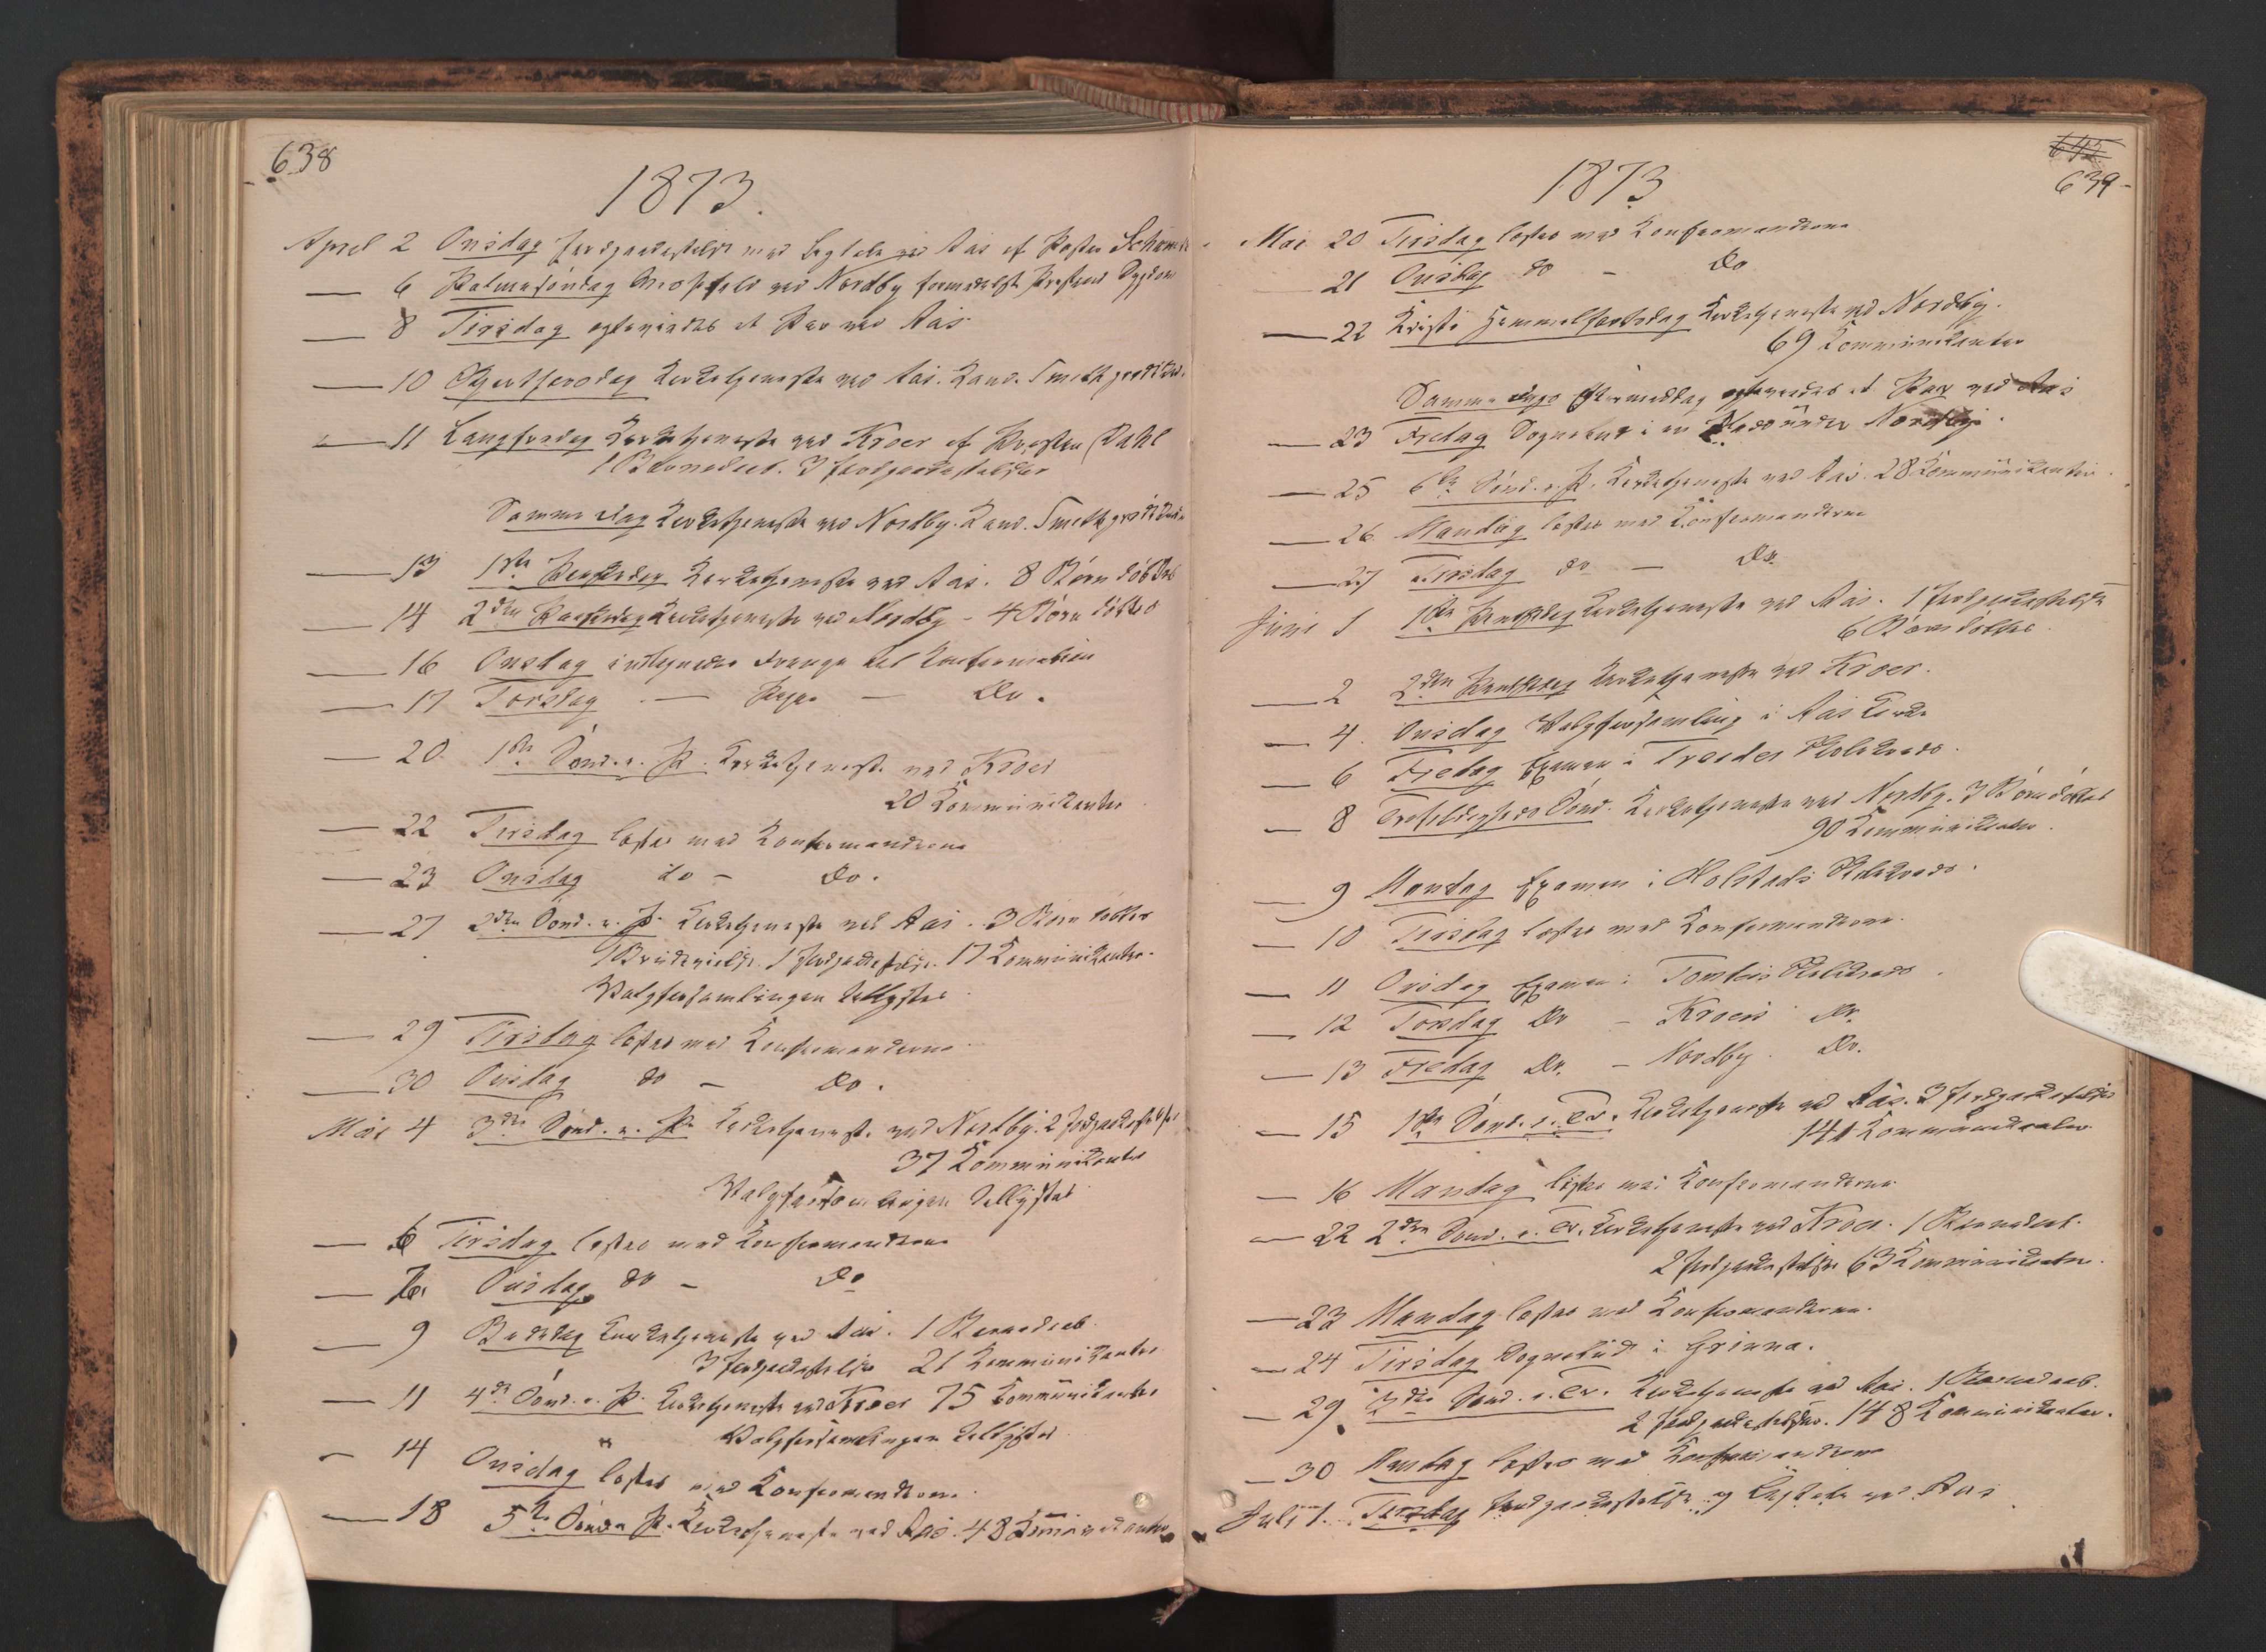 638
1873.
April 2 Onsdag Jordpaakastelse med Ligtale ved Aas af Pastor
— 6 Palmesøndag Messefald ved Nordby formedelst Præstens Sygdom
— 8 Tirsdag egteviedes et Par ved Aas
— 10 Skjertorsdag Kirketjeneste ved Aas. Kand. Smith prædikede.
— 11 Langfredag Kirketjeneste ved Kroer af Præsten Dahl
1 Barnedaab. 3 Jordpaakastelser
Samme Dag Kirketjeneste ved Nordby. Kand. Smith prædikede
— 13 1ste Paaskedag Kirketjeneste ved Aas. 8 Børn døbtes
— 14 2den Paaskedag Kirketjeneste ved Nordby - 4 Børn døbtes
— 16 Onsdag indtegnedes Drenge til Konfirmation
— 17 Torsdag — Piger — Do.
— 20 1ste Sønd. e. P. Kirketjeneste ved Kroer
20 Kommunikanter
— 22 Tirsdag læstes med Konfirmanderne
— 23 Onsdag do - Do.
— 27 2den Sønd. e. P. Kirketjeneste ved Aas. 3 Børn døbtes
1 Brudevielse. 1 Jordpaakastelse. 17 Kommunikanter.
Valgforsamlingen tillystes
— 29 Tirsdag læstes med Konfirmanderne
— 30 Onsdag do - Do.
Mai 4 3die Sønd. e. P. Kirketjeneste ved Nordby. 2 Jordpaakastelser
37 Kommunikanter
Valgforsamlingen tillystes
— 6 Tirsdag læstes med Konfirmanderne
— 7. Onsdag do - Do
— 9 Bededag Kirketjeneste ved Aas. 1 Barnedaab.
3 Jordpaakastelser 21 Kommunikanter
— 11 4de Sønd. e. P. Kirketjeneste ved Kroer 75 Kommunikanter
Valgforsamlingen tillystes
— 14 Onsdag læstes med Konfirmanderne.
— 18 5te Sønd. e. P. Kirketjeneste ved Aas. 48 Kommunikanter
639
1873
Mai 20 Tirsdag læstes med Konfirmanderne
— 21 Onsdag do - Do
— 22 Kristi Himmelfartsdag Kirketjeneste ved Nordby.
69 Kommunikanter
Samme Dags Eftermiddag egteviedes et Par ved Aas
— 23 Fredag Sognebud i en Plads under Nordby.
— 25 6te Sønd. e. P. Kirketjeneste ved Aas. 28 Kommunikanter.
— 26 Mandag læstes med Konfirmanderne
— 27 Tirsdag do — Do.
Juni 1 1ste Pintsedag Kirketjeneste ved Aas. 1 Jordpaakastelse
6 Børn døbtes.
— 2 2den Pintsedag Kirketjeneste ved Kroer.
— 4. Onsdag Valgforsamling i Aas Kirke
— 6 Fredag Examen i Skolekreds.
— 8 Trefoldigheds Sønd. Kirketjeneste ved Nordby. 3 Børn døbtes
90 Kommunikanter.
— 9 Mandag Examen i Holstads Skolekreds.
— 10 Tirsdag læstes med Konfirmanderne.
— 11 Onsdag Examen i Skolekreds.
— 12 Torsdag Do - Kroers Do.
— 13 Fredag Do. - Nordby. Do.
— 15 1ste Sønd. e. Tr. Kirketjeneste ved Aas. 3 Jordpaakastelser
141 Kommunikanter.
— 16 Mandag læstes med Konfirmanderne
— 22 2den Sønd. e. Tr. Kirketjeneste ved Kroer. 1 Barnedaab.
2 Jordpaakastelser 63 Kommunikanter.
— 23 Mandag læstes med Konfirmanderne.
— 24 Tirsdag Sognebud i
— 29 3die Sønd. e. Tr. Kirketjeneste ved Aas. 1 Barnedaab.
2 Jordpaakastelser. 148 Kommunikanter.
— 30 Mandag læstes med Konfirmanderne
Juli 1. Tirsdag Jordpaakastelse og Ligtale ved Aas